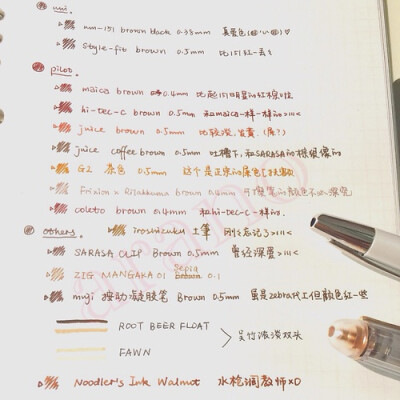 uni.
um-151 brown black 0.38mm 真爱色
style-fit brown 0.5mm 比151红一点
pilot.
maica brown 0.4mm 比起151明显的红棕
hi-tec-c brown 0.5mm 和maica一样一样的>皿<
juice brown 0.5mm 比较浅,发黄.
juice coffee brown 0.5mm 吐槽下,和SARASA的棕很像的
G2 茶色 0.5mm 这个是正宗的屎色
Frixion x Rilakkuma brown 0.4mm 可擦笔的颜色不以深
coleto brown 0.4mm 和hi-tec-c一样的.
others.
iroshizuku 土筆 刚才忘记了>皿<
SARASA CLIP Brown 0.5mm 曾经深爱>皿<
ZIG MANGAKA 01 Sepia 0.1
muji 按动凝胶笔 Brown 0.5mm 虽是zebra代工但颜色红一些
ROOT BEER FLOAT
吴竹浓淡双头
FAWN
Noodler's Ink Walnut 水枪调教师xD